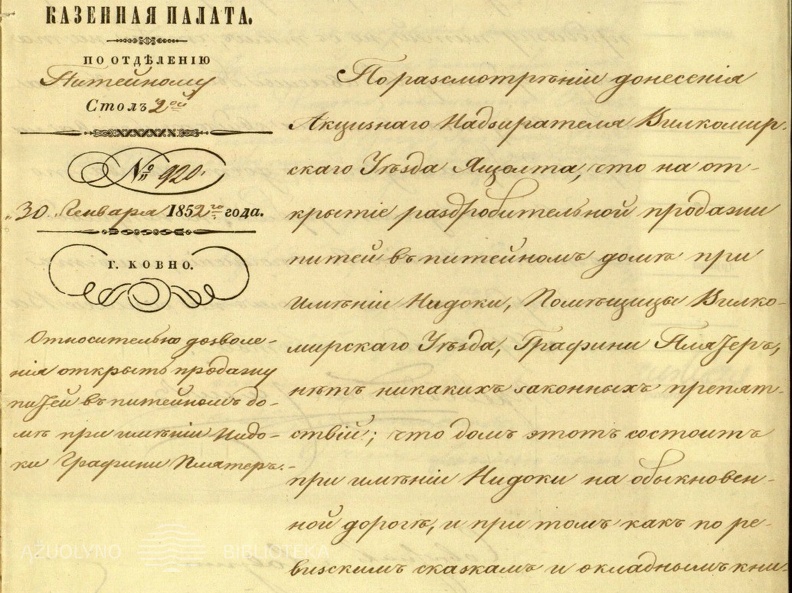 КАЗЕННАЯ ПАЛАТА.
ПО ОТДѢЛЕНІЮ
Питейному
Столъ 2ой
№ 920.
30 Генваря 1852го года.
Г. КОВНО.
Относительно дозволе-
нія открыть продажу
питей въ питейномъ до-
мѣ при имѣніи Нидо-
ки Графини Плятеръ.
По разсмотрѣніи донесенія
Акцизнаго Надзирателя Вилкомир-
скаго Уѣзда Ящолта, что на от-
крытіе раздробительной продажи
питей въ питейномъ домѣ при
имѣніи Нидоки, Помѣщицы Вилко-
мирскаго Уѣзда, Графини Плятеръ,
нѣтъ никакихъ законныхъ препят-
ствій; что домъ этотъ состоитъ
при имѣніи Нидоки на обыкновен-
ной дорогѣ, и при томъ какъ по ре-
визскимъ сказкамъ и окладнымъ кни-
AŽUOLYNO BIBLIOTEKA